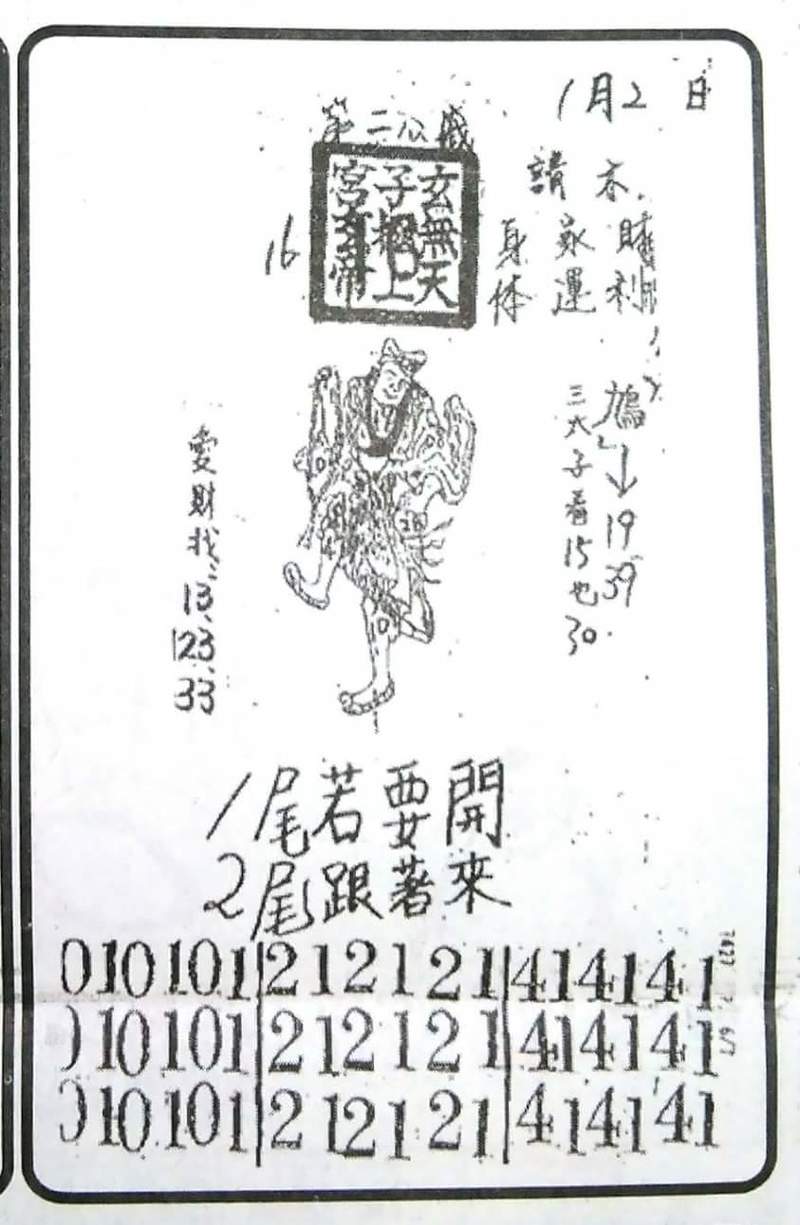 1月2日
第二公咸
玄無天
子極上
宮玄帝
16
請 木
財利
家運
身体
鴆→19 39
三六子看15也30
愛財找:13、23、33
1尾若要開
2尾跟著來
010101 212121 414141
010101 212121 414141
010101 212121 414141